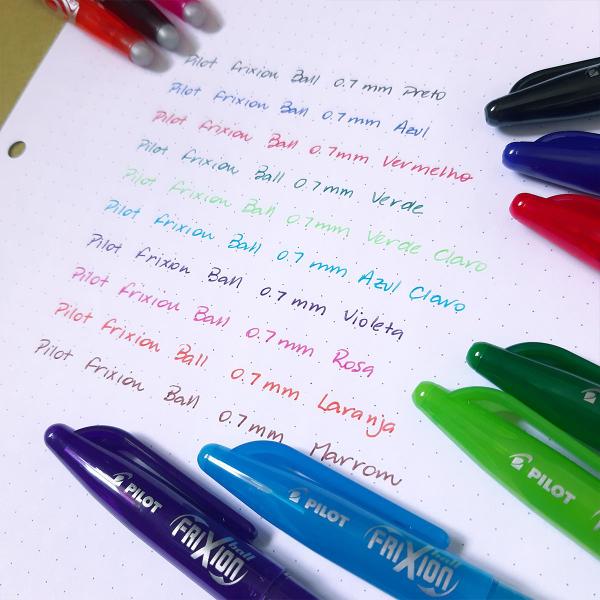 Pilot Frixion Ball 0.7mm Preto
Pilot Frixion Ball 0.7mm Azul
Pilot Frixion Ball 0.7mm Vermelho
Pilot Frixion Ball 0.7mm Verde
Pilot Frixion Ball 0.7mm Verde Claro
Pilot Frixion Ball 0.7mm Azul Claro
Pilot Frixion Ball 0.7mm Violeta
Pilot Frixion Ball 0.7mm Rosa
Pilot Frixion Ball 0.7mm Laranja
Pilot Frixion Ball 0.7mm Marrom
PILOT
PILOT FRIXION ball
PILOT FRIXION ball